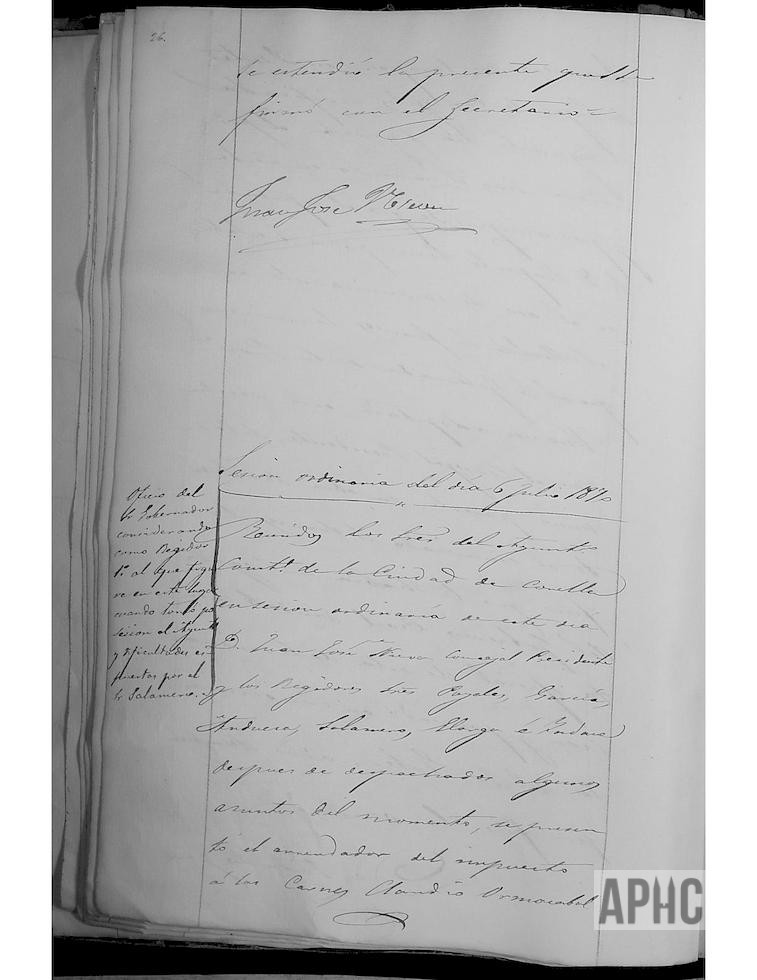 26.
se estendió la presente que
firmó con el Secretario =
Juan José Nieva
Sesion ordinaria del dia 6 Julio 1870
Oficio del
Sr Gobernador
considerando
como Regidor
1º al que figu
re en este lugar
cuando tomó po
sesion el Ayunto
y dificultades es
puestas por el
Sr Salamero.
Reunidos los Sres del Ayunto
Constl de la Ciudad de Corella
en sesion ordinaria de este dia
D. Juan José Nieva Concejal Presidente
y los Regidores Sres García,
Andueza, Salamero, é
despues de despachados algunos
asuntos del momento, se presen
tó el arrendador del impuesto
á las Carnes Claudio Ormazabal
APHC